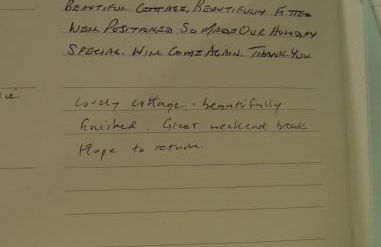 BEAUTIFUL COTTAGE, BEAUTIFULLY FITTED
WELL POSITIONED SO MADE OUR HOLIDAY
SPECIAL. WILL COME AGAIN. THANK YOU
Lovely cottage - beautifully
finished. Great weekend break
Hope to return.